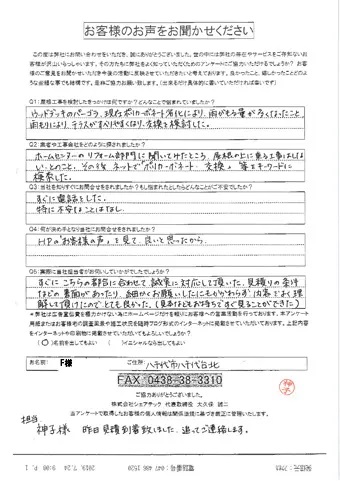 お客様のお声をお聞かせください
この度は弊社にお問い合わせをいただき、誠にありがとうございました。世の中には弊社の存在やサービスをご存知ないお
客様が沢山いらっしゃいます。その方たちに弊社をよく知っていただくためのアンケートにご協力いただけるでしょうか？　お客
様のご意見をお聞かせいただき今後の活動に反映させていきたいと考えております。良かったこと、嬉しかったことどのよ
うな些細な事でも結構です。是非ご協力お願い致します。
Q1:屋根工事を検討したきっかけは何ですか？どんなことで悩まれていましたか？
ウッドデッキのパーゴラ、現在ポリカーボネート劣化により、雨がもる量が多くなったこと
雨もりにより、テラスがすべりやすくなり、交換を検討した。
Q2:業者や工事会社をどのように探されましたか？
ホームセンターのリフォーム部門に聞いてみたところ、屋根の上に乗る工事はしな
い、とのこと。その後、ネットで「ポリカーボネート　交換」等をキーワードに
検索した。
Q3:当社を知りすぐにお問合せをされましたか？もし悩まれたとしたらどんなことがご不安でしたか？
すぐに電話をした。
特に不安なことはなし。
Q4:何が決め手となり当社にお問合せをされましたか？
HPの「お客様の声」を見て、良いと思ったから。
Q5:実際に当社担当者がお伺いしていかがでしたでしょうか？
すぐにこちらの都合に合わせて誠実に対応して頂いた。見積りの条件
などの書面があったり、細かくお願いしたにもかかわらず、内容をよく理
解して頂けたのでとても良かった。
お名前:　F様　ご住所:　八千代市八千代台北
FAX 0438-38-3310
ご協力ありがとうございました。
株式会社シェアテック　代表取締役　大久保　誠二
当アンケートで取得したお客様の個人情報は関係法規に基づき厳正に管理いたします。
担当
神子様　昨日見積到着致しました。追ってご連絡します。